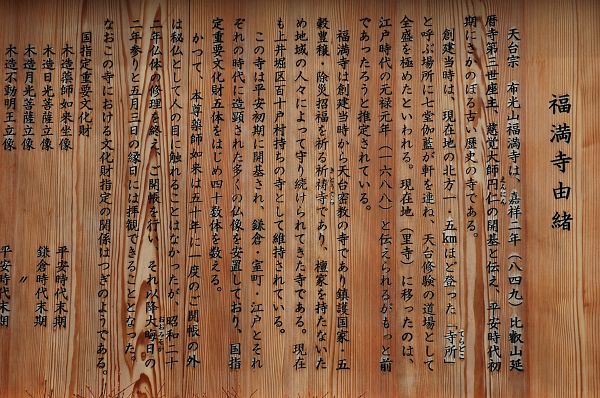 福満寺由緒
天台宗 布光山福満寺は、嘉祥二年(八四九)比叡山延
暦寺第三世座主、慈覚大師円仁の開基と伝え、平安時代初
期にさかのぼる古い歴史の寺である。
創建当時は、現在地の北方一・五kmほど登った「寺所」
と呼ぶ場所に七堂伽藍が軒を連ね、天台修験の道場として
全盛を極めたといわれる。現在地(里寺)に移ったのは、
江戸時代の元禄元年(一六八八)と伝えられるがもっと前
であったろうと推定されている。
福満寺は創建当時から天台密教の寺であり鎮護国家・五
穀豊穣・除災招福を祈る祈祷寺であり、檀家を持たないた
め地域の人々によって守り続けられてきた寺である。現在
も上井堀区百十戸村持ちの寺として維持されている。
この寺は平安初期に開基され、鎌倉・室町・江戸とそれ
ぞれの時代に造顕された多くの仏像を安置しており、国指
定重要文化財五体をはじめ四十数体を数える。
かつて、本尊薬師如来は五十年に一度のご開帳の外
は秘仏として人の目に触れることはなかったが、昭和二十
二年仏体の修理を終え、ご開帳を行い、それ以降大晦日の
二年参りと五月三日の縁日には拝観できることとなった。
なおこの寺における文化財指定の関係はつぎのようである。
国指定重要文化財
木造薬師如来坐像 平安時代末期
木造日光菩薩立像 鎌倉時代末期
木造月光菩薩立像 〃
木造不動明王立像 平安時代末期